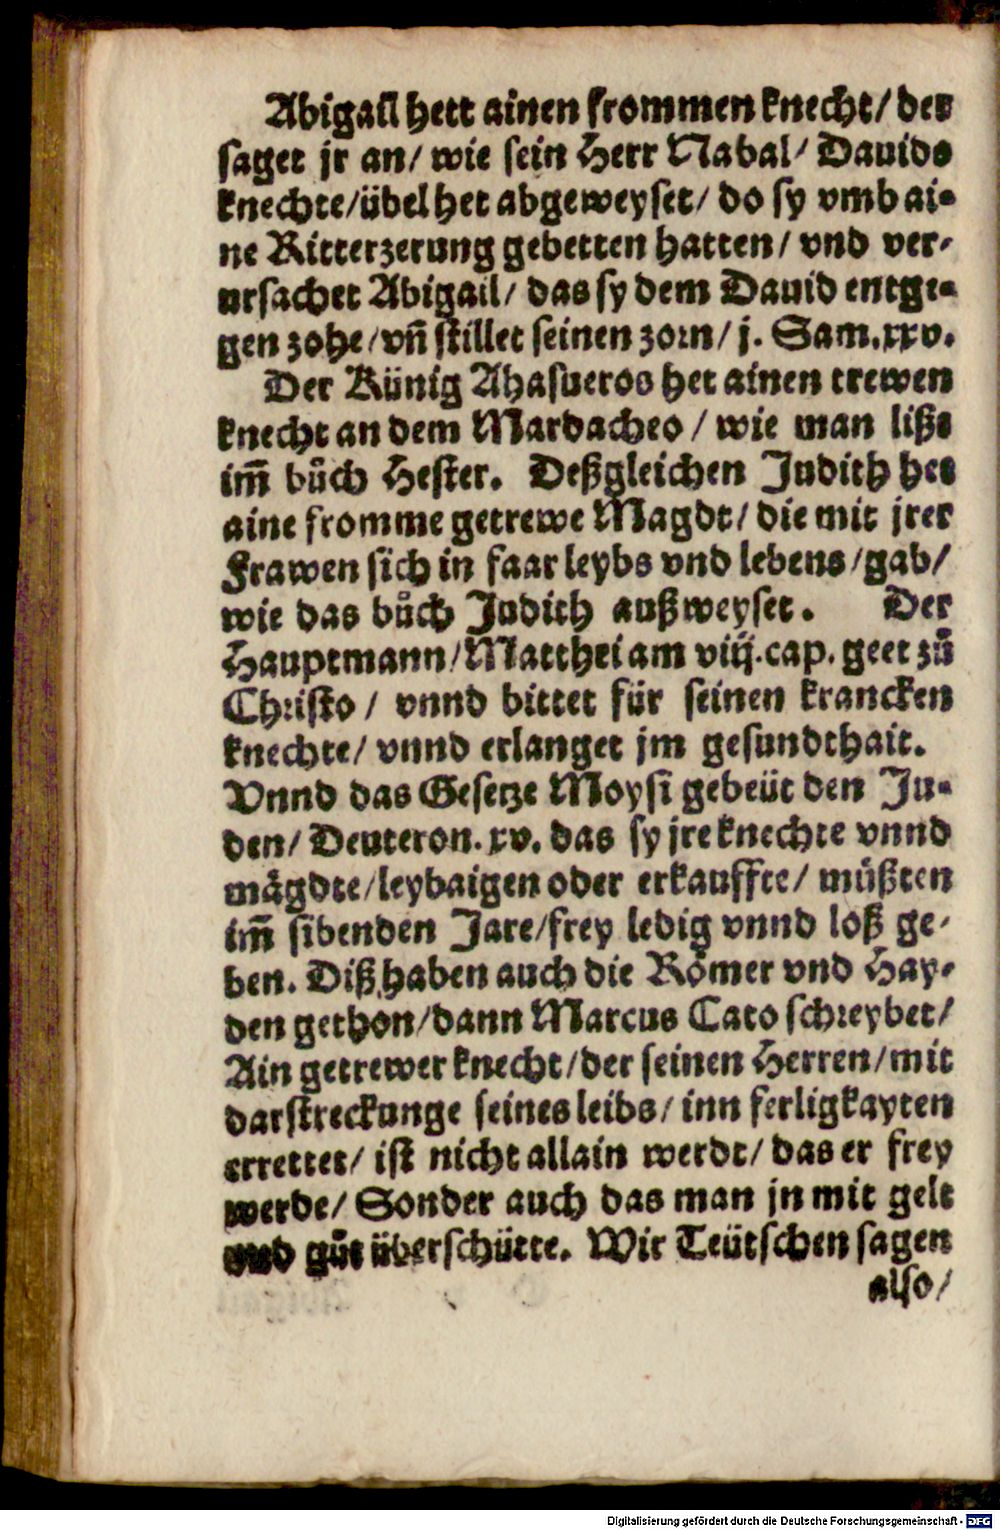 Abigail hett ainen frommen knecht/ der
saget jr an/ wie sein Herr Nabal/ Dauids
knechte/übel het abgeweyset/ do sy vmb ai-
ne Ritterzerung gebetten hatten/ vnd ver-
ursachet Abigail/ das sy dem Dauid entge-
gen zohe/vñ stillet seinen zorn/ j. Sam.xxv.
Der Künig Ahasueros het ainen trewen
knecht an dem Mardacheo / wie man lißt
im̃ bůch Hester. Deßgleichen Judith het
aine fromme getrewe Magdt/ die mit jrer
Frawen sich in faar leybs vnd lebens/gab/
wie das bůch Judith außweyset. Der
Hauptmann/Matthei am viij.cap. geet zů
Christo / vnnd bittet für seinen krancken
knechte/ vnnd erlanget jm gesundthait.
Vnnd das Gesetze Moysi gebeüt den Ju-
den/ Deuteron.xv. das sy jre knechte vnnd
mägdte/leybaigen oder erkauffte/ müßten
im̃ sibenden Jare/frey ledig vnnd loß ge-
ben. Diß haben auch die Römer vnd Hay-
den gethon/dann Marcus Cato schreybet/
Ain getrewer knecht/der seinen Herren/mit
darstreckunge seines leibs/ inn ferligkayten
errettet/ ist nicht allain werdt/ das er frey
werde/ Sonder auch das man jn mit gelt
vnd gůt überschütte. Wir Teütschen sagen
also/
Digitalisierung gefördert durch die Deutsche Forschungsgemeinschaft - DFG